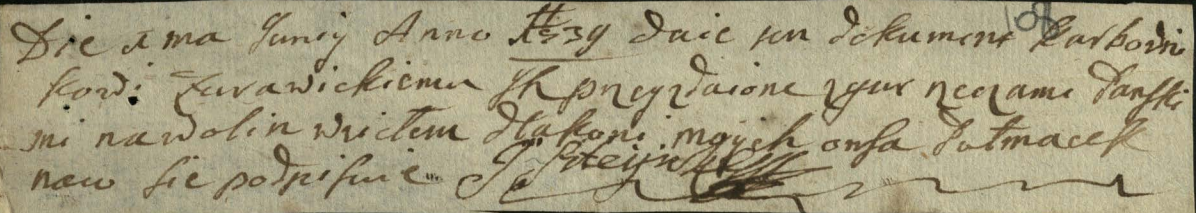 108
Die 1 ma Junij Anno 1739 daie ten dokument karbowni
kowi Żurawickiemu Jh przeyzdaione z gur rzeczami Pański
mi na Wolin wziełem dla koni moych owsa Pułmacek
na co sie podpisuie